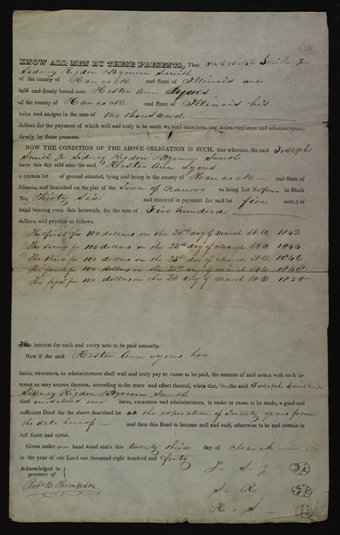 KNOW ALL MEN BY THESE PRESENTS, That We Joseph Smith Jr
Sidney Rigdon & Hyrum Smith
of the county of Hancock and State of Illinois are
held and firmly bound unto Hester Ann Lyons
of the county of Hancock and State of Illinois his
heirs and assigns in the sum of One thousand
dollars for the payment of which well and truly to be made we bind ourselves, our heirs, executors and administrators,
firmly by these presents.
NOW THE CONDITION OF THE ABOVE OBLIGATION IS SUCH, that whereas, the said Joseph
Smith Jr Sidney Rigdon & Hyrum Smith
have this day sold unto the said Hester Ann Lyons
a certain lot of ground situated, lying and being in the Hancock and State of
Illinois, and described on the plat of the Town of Nauvoo as being Lot No in Block
No Thirty Six and received in payment for said lot five notes of
hand bearing even date herewith, for the sum of Five hundred
dollars, and payable as follows.
The first for 100 dollars on the 23rd day of March 1842
The second for 100 dollars on the 23rd day of March 1844
The third for 100 dollars on the 23rd day of March 1846
The fourth for 100 dollars on the 23rd day of March 1848
The for 100 dollars on the 23rd day of March 1850
The interest for each and every note to be paid annually.
Now if the said Hester Ann Lyons her
heirs, executors, or administrators shall well and truly pay or cause to be paid, the amount of said notes with such interest
as may accrue thereon, according to the tenor and effect thereof, when due, the said Joseph Smith Jr
Sidney Rigdon & Hyrum Smith
bind ourselves our heirs, executors and administrators, to make or cause to be made, a good and
sufficient Deed for the above described lot at the expiration of twenty years from
the date hereof and then this Bond to become null and void, otherwise to be and remain in
full force and virtue.
Given under our hand and seals this twenty third day of March
in the year of our Lord one thousand eight hundred and forty
Acknowledged in
presence of
Robt B Thompson
J. S. Jr
S. R.
H. S.